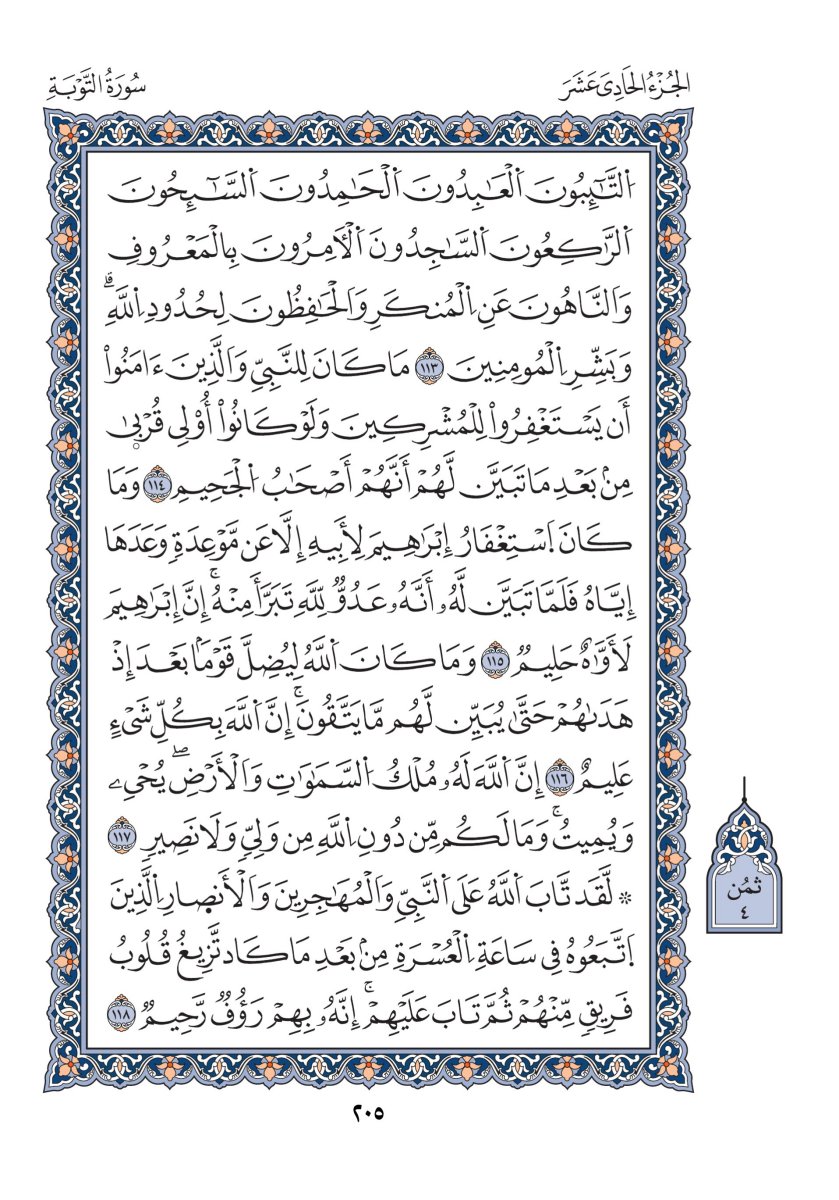 الجُزْءُ الحَادِي عَشَرَ
سُورَةُ التَّوْبَةِ
اَ۬لتَّٰٓئِبُونَ اَ۬لْعَٰبِدُونَ اَ۬لْحَٰمِدُونَ اَ۬لسَّٰٓئِحُونَ
اَ۬لرَّٰكِعُونَ اَ۬لسَّٰجِدُونَ اَ۬لْأٓمِرُونَ بِالْمَعْرُوفِ
وَالنَّاهُونَ عَنِ اِ۬لْمُنكَرِ وَالْحَٰفِظُونَ لِحُدُودِ اِ۬للَّهِۗ
وَبَشِّرِ اِ۬لْمُومِنِينَ ١١٣ مَا كَانَ لِلنَّبِيِّ وَالَّذِينَ ءَامَنُوا۟
أَن يَسْتَغْفِرُوا۟ لِلْمُشْرِكِينَ وَلَوْ كَانُوا۟ أُو۟لِي قُرْبٜىٰ
مِنۢ بَعْدِ مَا تَبَيَّن لَّهُمْ أَنَّهُمْ أَصْحَٰبُ اُ۬لْجَحِيمِ ١١٤ وَمَا
كَانَ اَ۪سْتِغْفَارُ إِبْرَٰهِيمَ لِأَبِيهِ إِلَّا عَن مَّوْعِدَةٖ وَعَدَهَا
إِيَّاهُ فَلَمَّا تَبَيَّن لَّهُۥ أَنَّهُۥ عَدُوّٞ لِّلَّهِ تَبَرَّأَ مِنْهُۚ إِنَّ إِبْرَٰهِيمَ
لَأَوَّٰهٌ حَلِيمٞ ١١٥ وَمَا كَانَ اَ۬للَّهُ لِيُضِلَّ قَوْمَۢا بَعْدَ إِذْ
هَدَىٰهُمْ حَتَّىٰ يُبَيِّن لَّهُم مَّا يَتَّقُونَۚ إِنَّ اَ۬للَّهَ بِكُلِّ شَيْءٍ
عَلِيمٌ ١١٦ إِنَّ اَ۬للَّهَ لَهُۥ مُلْكُ اُ۬لسَّمَٰوَٰتِ وَالْأَرْضِۖ يُحْيِۦ
وَيُمِيتُۚ وَمَا لَكُم مِّن دُونِ اِ۬للَّهِ مِن وَلِيّٖ وَلَا نَصِيرٖ ١١٧
۞ لَّقَد تَّابَ اَ۬للَّهُ عَلَى اَ۬لنَّبِيِّ وَالْمُهَٰجِرِينَ وَالْأَنصٜارِ اِ۬لَّذِينَ
اَ۪تَّبَعُوهُ فِي سَاعَةِ اِ۬لْعُسْرَةِ مِنۢ بَعْدِ مَا كَاد تَّزِيغُ قُلُوبُ
فَرِيقٖ مِّنْهُمْ ثُمَّ تَابَ عَلَيْهِمْۚ إِنَّهُۥ بِهِمْ رَؤُفٞ رَّحِيمٞ ١١٨
ثمُن
٤
٢٠٥